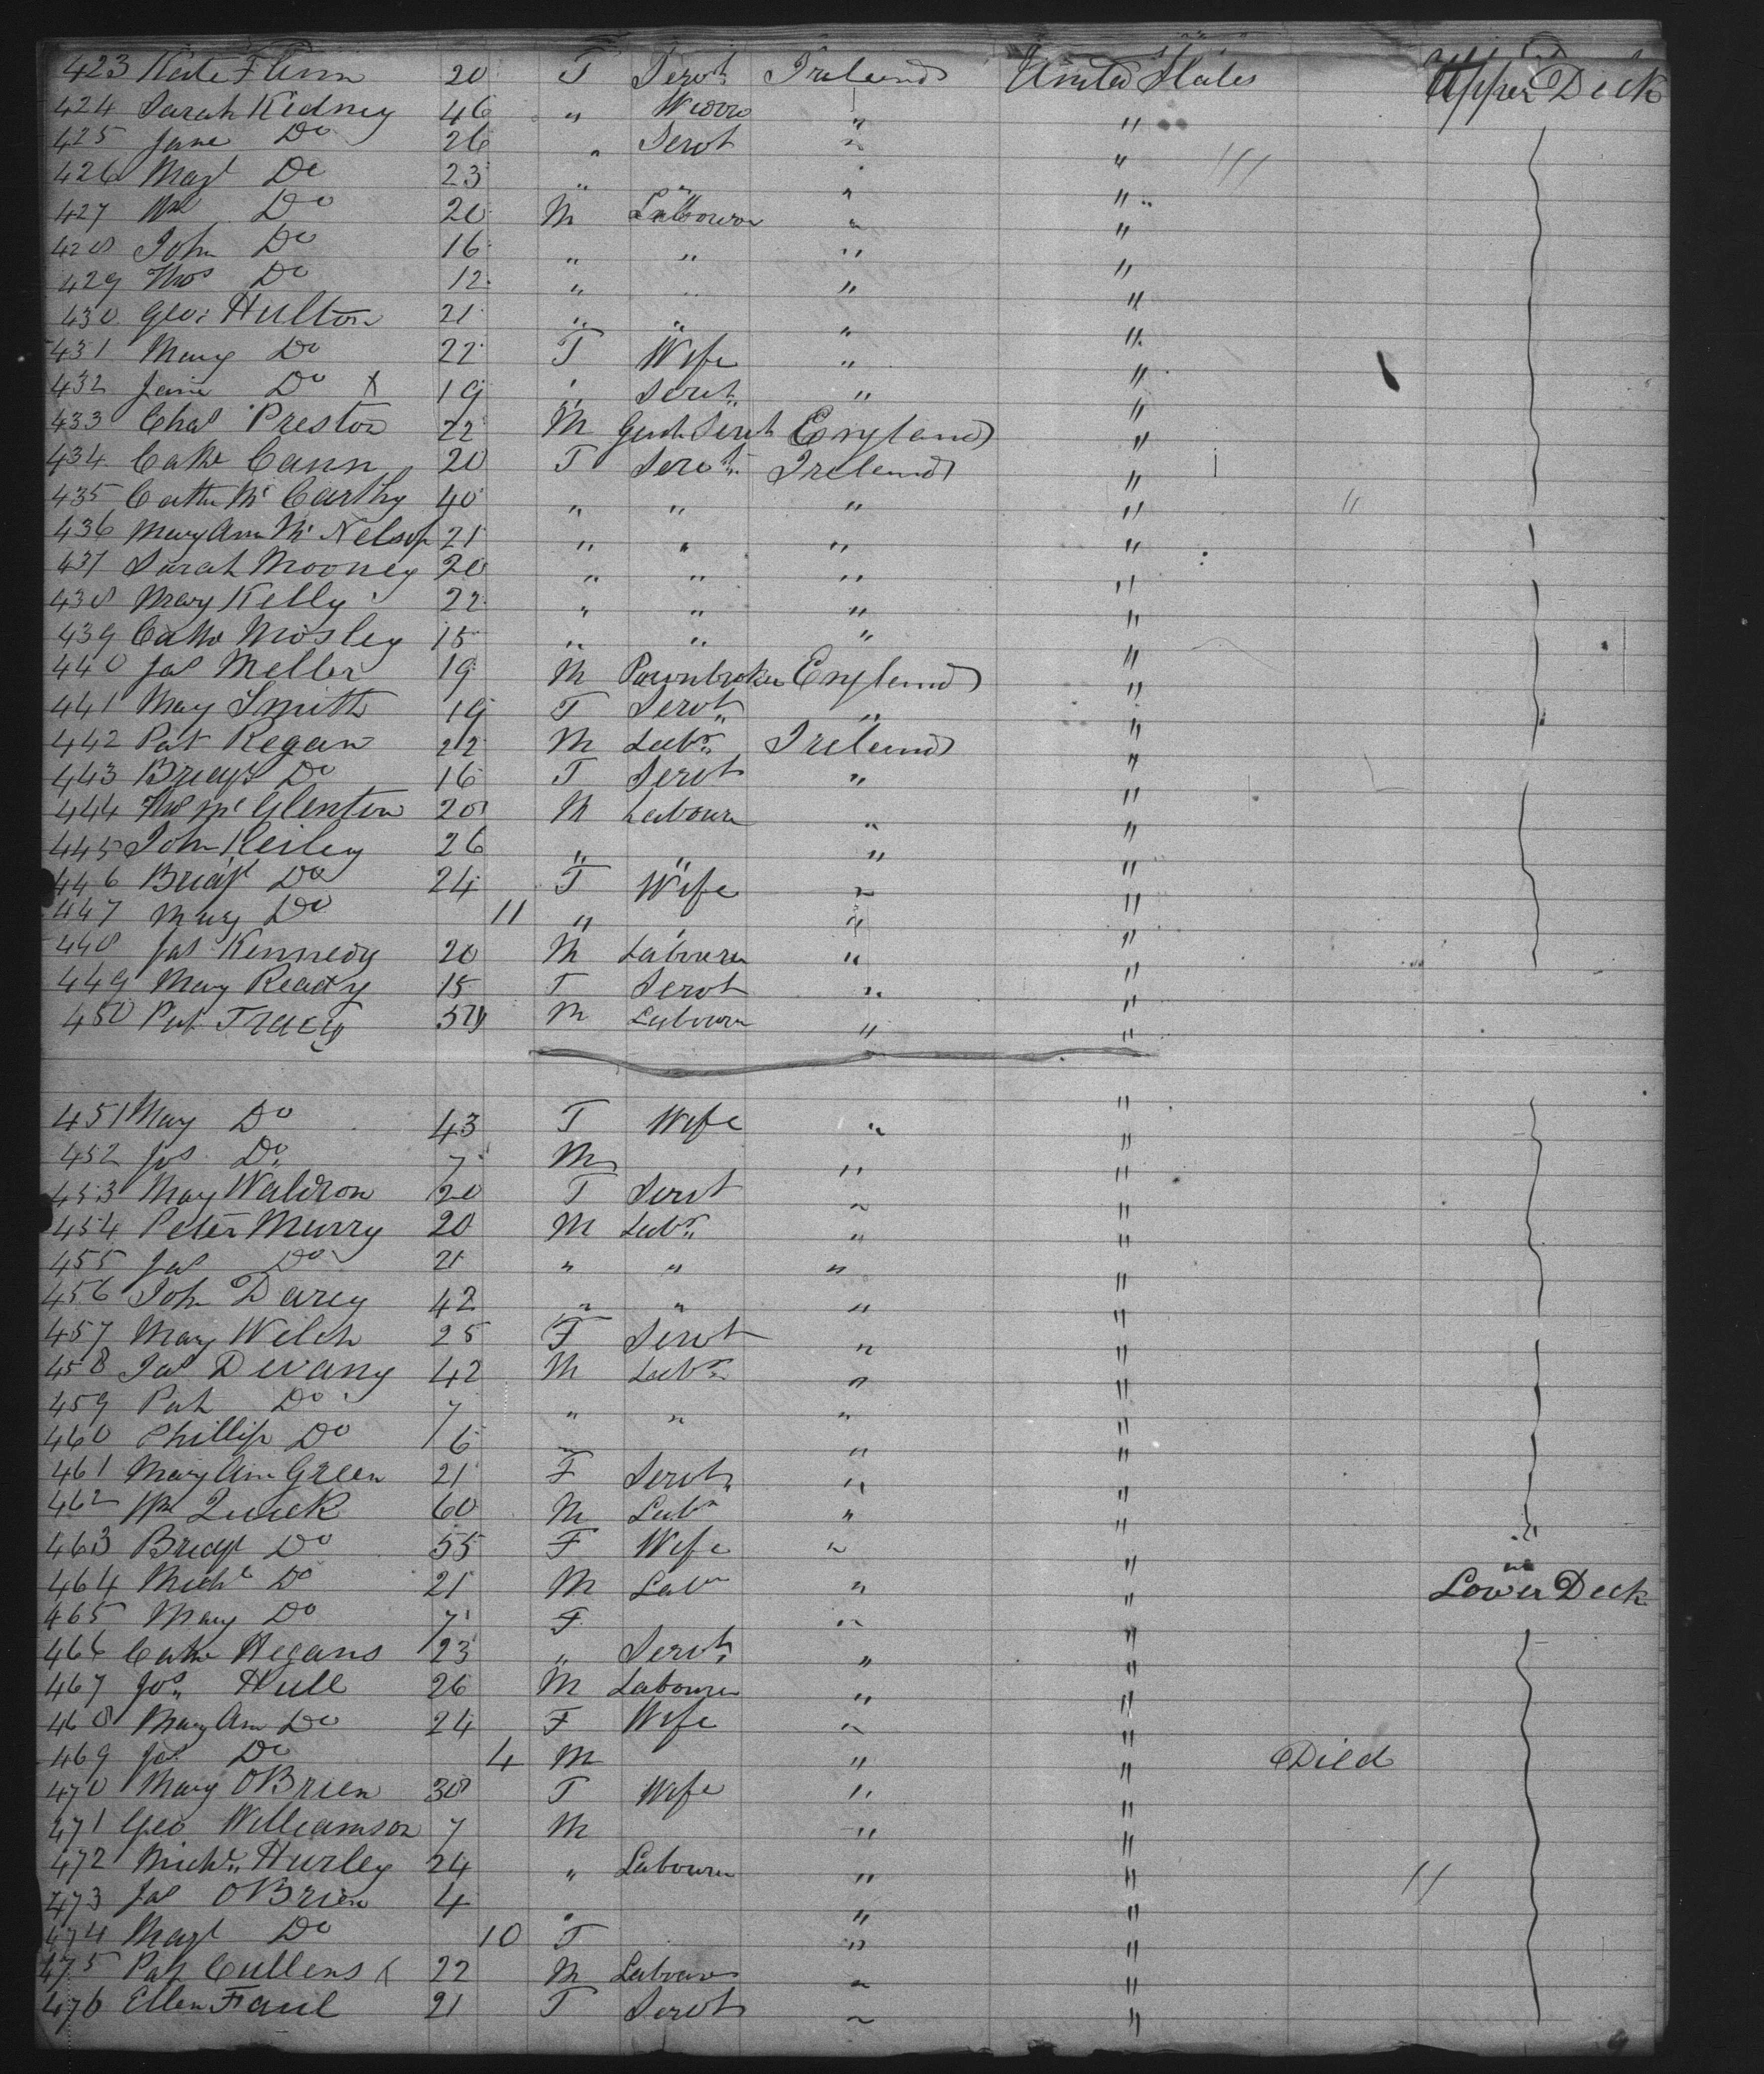 423 Kate Flinn 20 F Servt Ireland United States Upper Deck
424 Sarah Kidney 46 " Widow " "
425 Jane Do 26 " Servt " "
426 Magt Do 23 " " " "
427 Wm Do 20 M Labourer " "
428 John Do 16 " " " "
429 Thos Do 12 " " " "
430 Geo: Hulton 21 " " " "
431 Mary Do 22 F Wife " "
432 Jane Do X 19 " Servt " "
433 Chas Preston 22 M Gent Servt England "
434 Cathe Cann 20 F Servt Ireland "
435 Cathn Mc Carthy 40 " " " "
436 Mary Ann Mc 21 " " " "
437 Sarah Mooney 20 " " " "
438 Mary Kelly 22 " " " "
439 Cathe Mosley 15 " " " "
440 Jas Meller 19 M Pawnbroker England "
441 Mary Smith 19 F Servt " "
442 Pat Regan 22 M Labr Ireland "
443 Bridgt Do 16 F Servt " "
444 Thos Mc Glenton 20 M Labourer " "
445 John Reiley 26 " " " "
446 Bridgt Do 24 F Wife " "
447 Mary Do 11 " " " "
448 Jas Kennedy 20 M Labourer " "
449 Mary Ready 15 F Servt " "
450 Pat Tracy M Labourer " "
451 Mary Do 43 F Wife " "
452 Jos Do 7 M " "
453 Mary Waldron 20 F Servt " "
454 Peter Murry 20 M Labr " "
455 Jas Do 21 " " " "
456 John Darcy 42 " " " "
457 Mary Welch 25 F Servt " "
458 Jas Devany 42 M Labr " "
459 Pat Do 7 " " " "
460 Phillip Do 6 " " "
461 Mary Ann Green 21 F Servt " "
462 Wm Quick 60 M Labr " "
463 Bridgt Do 55 F Wife " "
464 Michl Do 21 M Labr " " Lower Deck
465 Mary Do 7 F " "
466 Cathe Hegans 23 " Servt " "
467 Jos Hull 26 M Labourer " "
468 Mary Ann Do 24 F Wife " "
469 Jas Do 4 M " " Died
470 Mary OBrien 30 F Wife " "
471 Geo Williamson 7 M " "
472 Michl Hurley 24 " Labourer " "
473 Jas OBrien 4 " " "
474 Magt Do 10 F " "
475 Pat Cullens X 22 M Labourer " "
476 Ellen Faul 21 F Servt " "